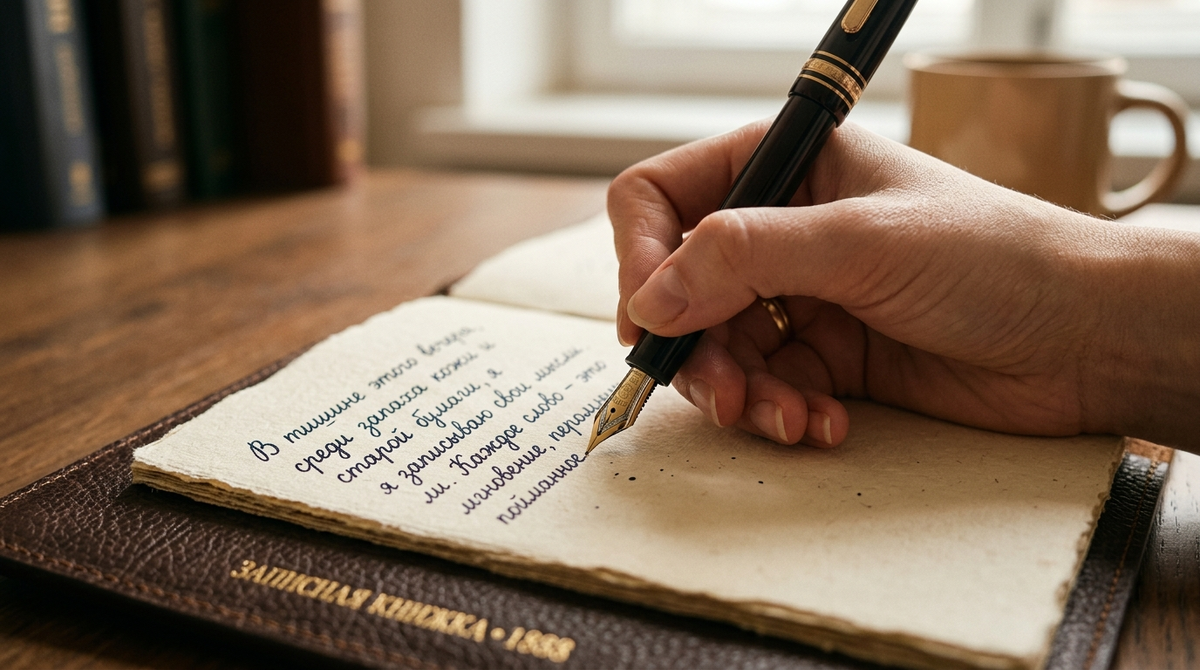 В тишине этого вечера,
среди запаха кожи и
старой бумаги, я
я записываю свои мысли
ли. Каждое слово – это
мгновение,
пойманное
ЗАПИСНАЯ КНИЖКА • 1888